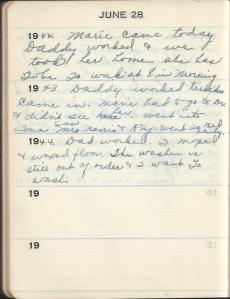 JUNE 28
1942. Marie came today
Daddy worked & we
took her home she has
To be To wak at 8 in morning
1943. Daddy worked trucks
came in. Marie had to go to Dr.
& didn't see went into
Town saw Mrs. & Ray. went to
1944. Dad worked. I moped
& waxed floor. The washer is
still out of order & I want To
wash.
19
19